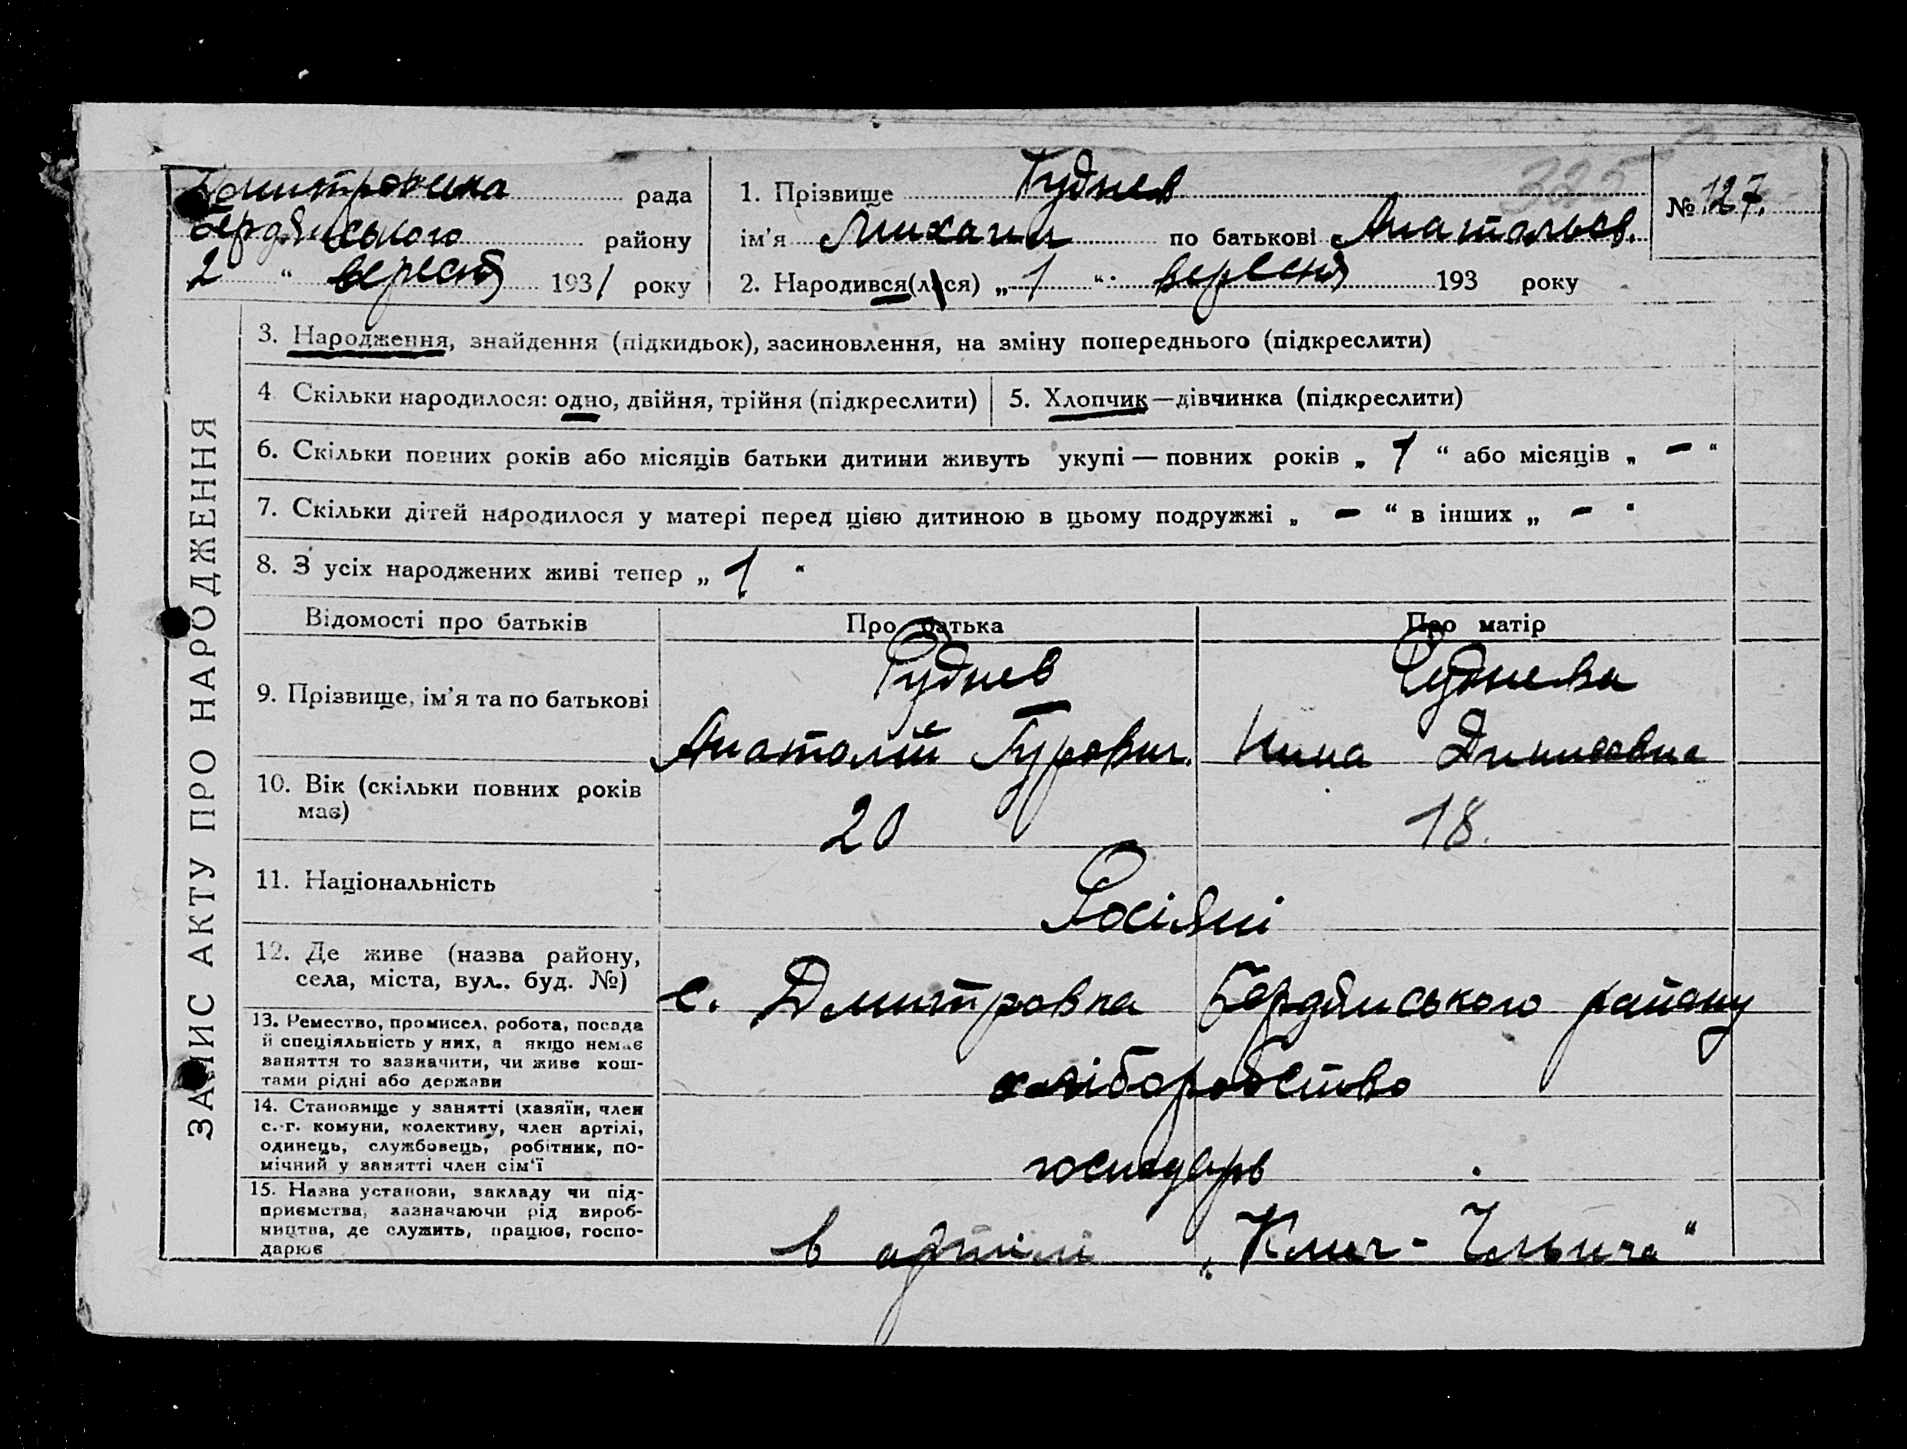 Дмитровська рада
Бердянського району
2 " вересня 1931 року
1. Прізвище Руднев
325
№ 127.
ім'я Михаил по батькові Анатольев.
2. Народився(лася) „ 1 " вересня 193 року
ЗАПИС АКТУ ПРО НАРОДЖЕННЯ
3. Народження, знайдення (підкидьок), засиновлення, на зміну попереднього (підкреслити)
4 Скільки народилося: одно, двійня, трійня (підкреслити)
5. Хлопчик—дівчинка (підкреслити)
6. Скільки повних років або місяців батьки дитини живуть укупі — повних років „ 1 " або місяців „ – "
7. Скільки дітей народилося у матері перед цією дитиною в цьому подружжі „ – " в інших „ – "
8. З усіх народжених живі тепер „ 1 "
Відомості про батьків
Про батька
Про матір
9. Прізвище, ім'я та по батькові
Руднев
Анатолій Гурович.
Руднева
Нина
10. Вік (скільки повних років
має)
20
18.
11. Національність
Росіяни
12. Де живе (назва району,
села, міста, вул.. буд. №)
с. Дмитровка Бердянського району
13. Ремество, промисел, робота, посада
й спеціяльність у них, а якщо немає
заняття то зазначити, чи живе кош-
тами рідні або держави
хліборобство
14. Становище у занятті (хазяїн, член
с.-г. комуни, колективу, член артілі,
одинець, службовець, робітник, по-
мічний у занятті член сім'ї
господарь
15. Назва установи, закладу чи під-
приємства, зазначаючи рід вироб-
ництва, де служить, працює, госпо-
дарює
в артілі „Клич-Ільича"